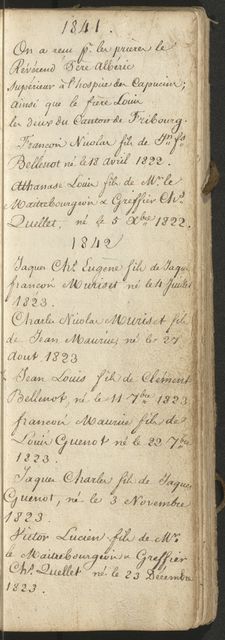 1841.
On a reçu pr. les prieres le
Révérend Père Albéric
Supérieur à l'hospice des Capucins,
ainsi que le frere Louis
les deux du Canton de Fribourg.
François Nicolas fils de Jn. fs.
Bellenot né le 18 avril 1822.
Athanase Louis fils de Mr. le
Maitrebourgeois & Greffier Chs.
Quellet, né le 5 Xbre 1822.
1842
Jaques Chs. Eugene fils de Jaques
françois Muriset né le 4 Juillet
1823.
Charles Nicolas Muriset fils
de Jean Maurice, né le 27
Aout 1823
Jean Louis fils de Clément
Bellenot, né le 11 7bre 1823
françois Maurice fils de
Louis Guenot né le 22 7bre
1823.
Jaques Charles fils de Jaques
Guenot, né le 3 Novembre
1823.
Victor Lucien fils de Mr.
le Maitrebourgeois & Greffier
Chs. Quellet né le 23 Décembre
1823.